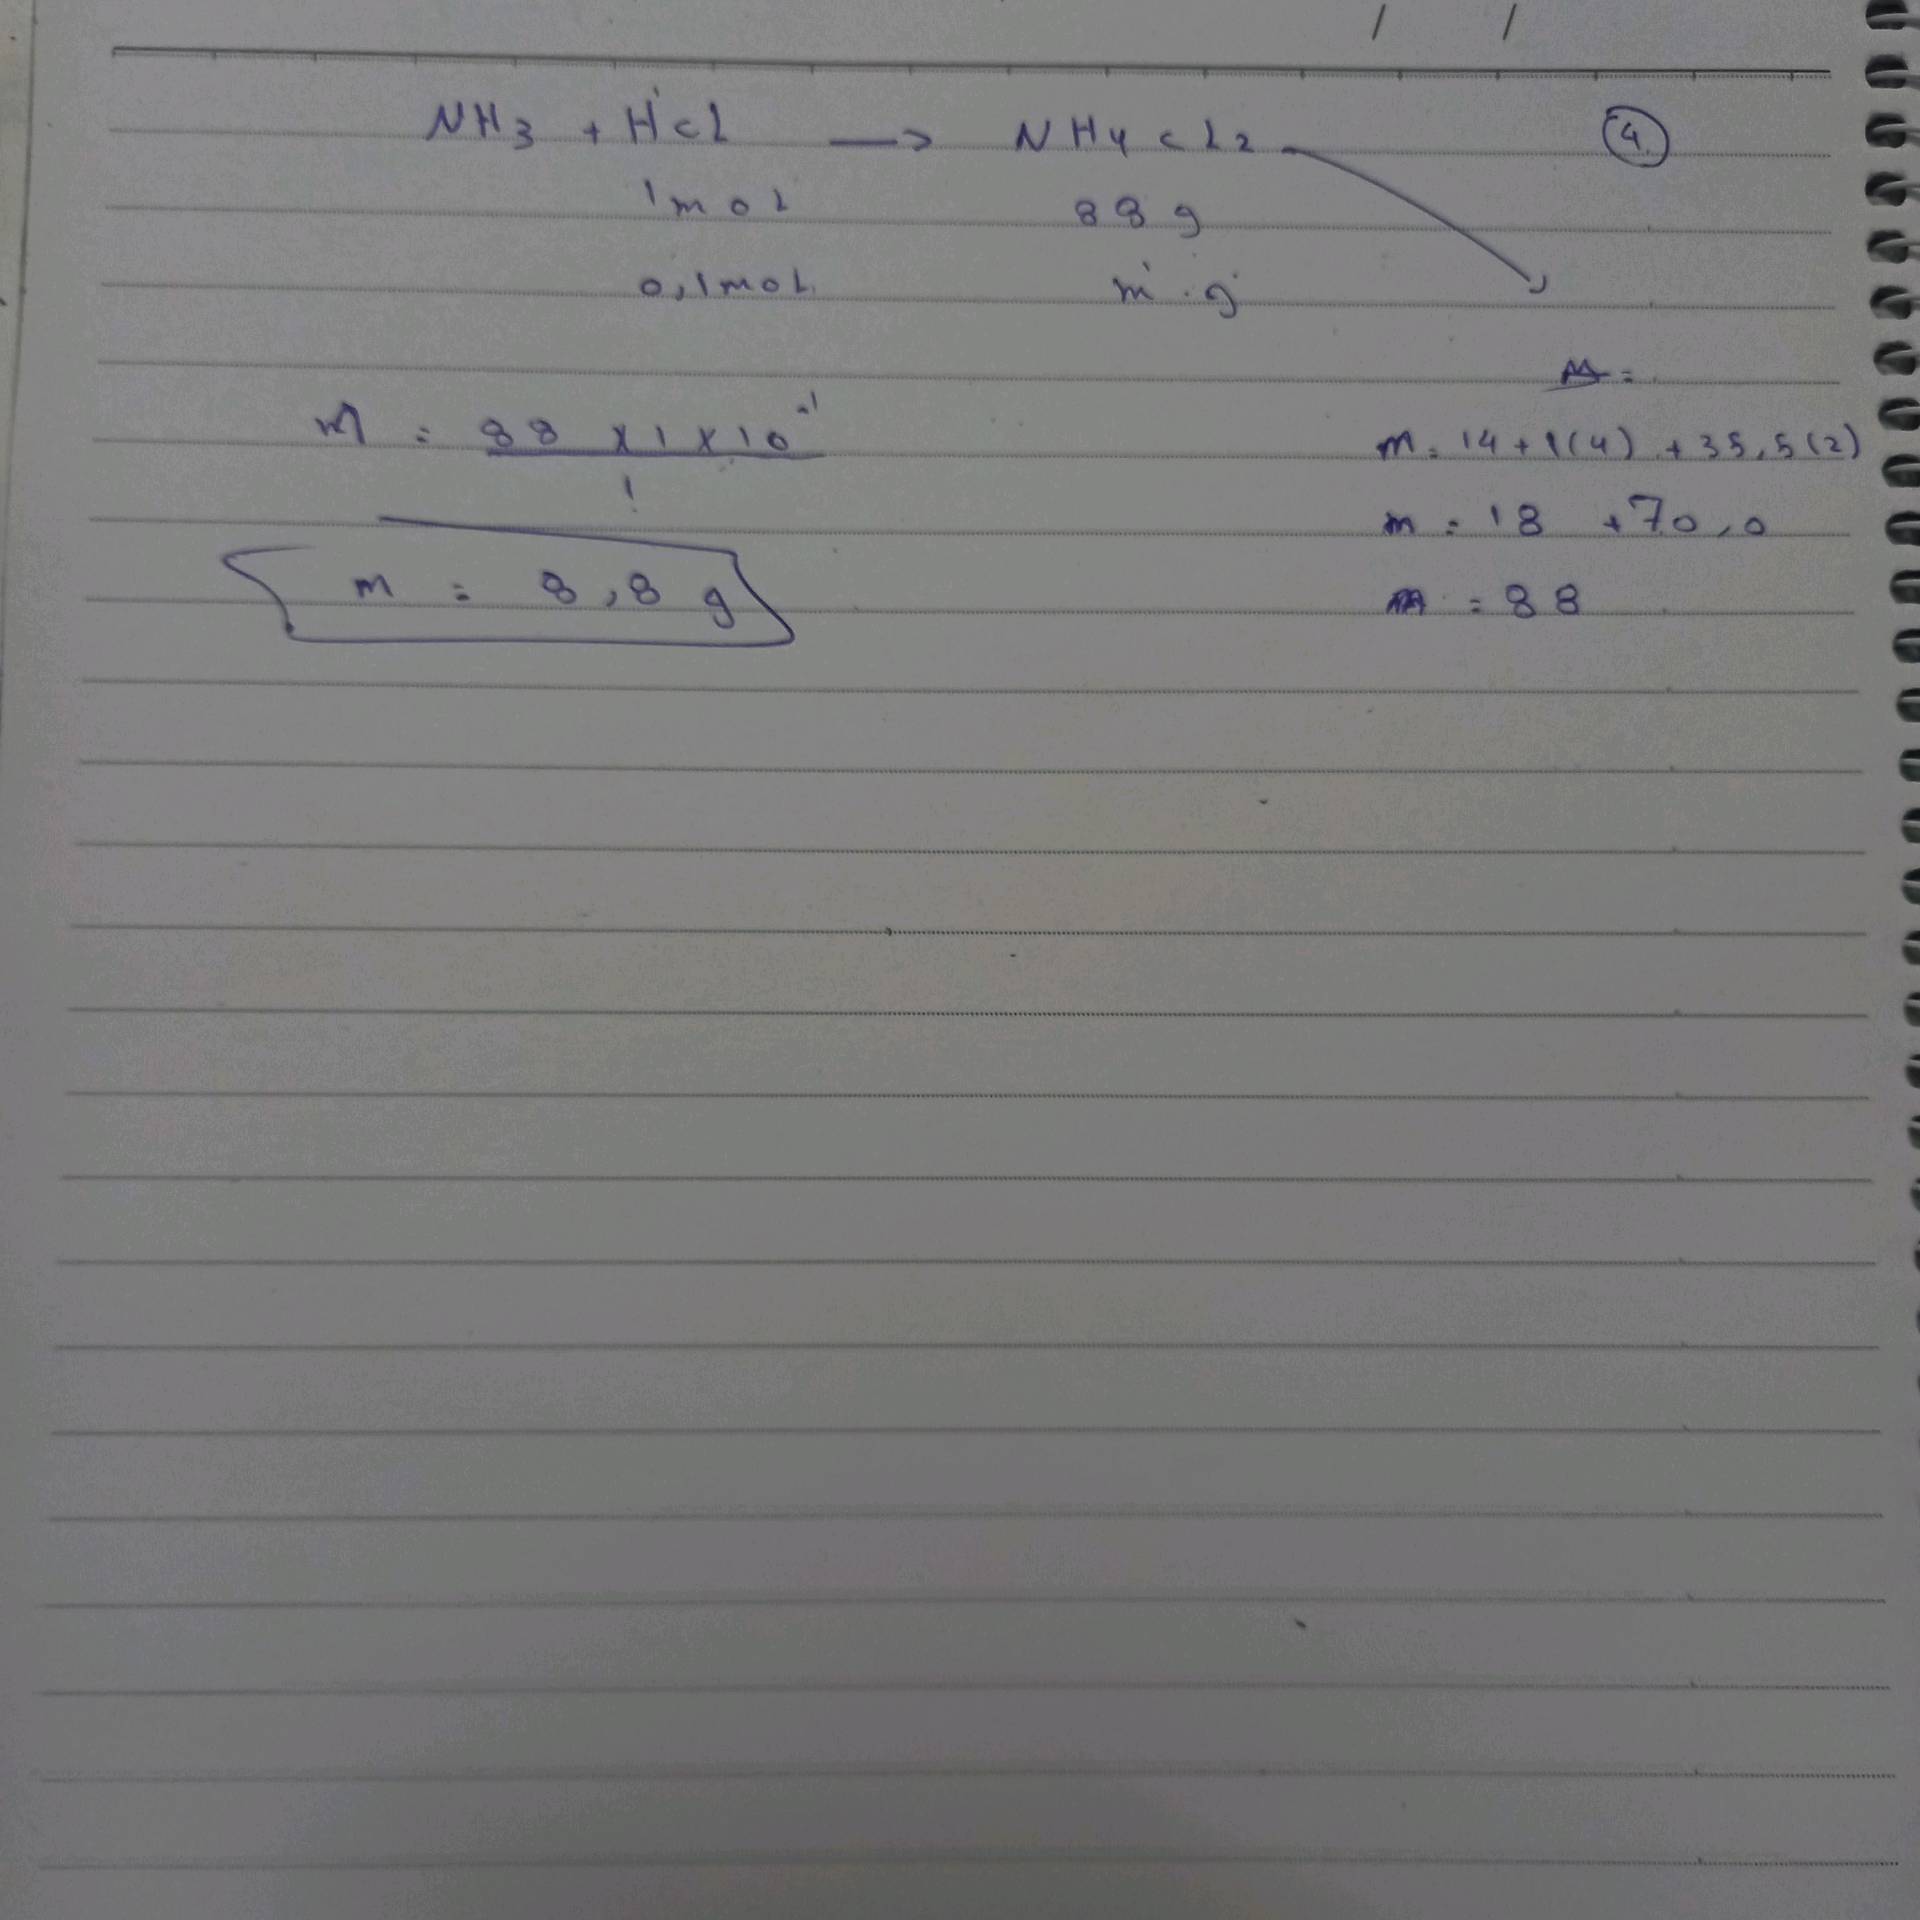 / /
NH3 + HCL —> NH4CL2 (4)
1mol 88g
0,1mol m.g
M =
m = 88 x 1 x 10^-1 m = 14 + 1(4) + 35,5(2)
1 m = 18 + 70,0
m = 8,8 g m = 88